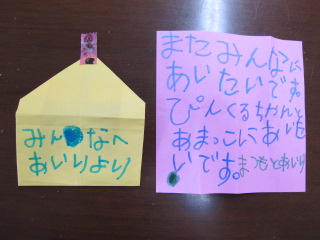 みんなへ
あいりより
またみんなに
あいたいです。
ぴんくるちゃんと
あまっこにあいた
いです。まつもとあいり